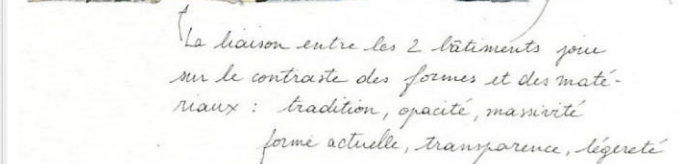 La liaison entre les 2 bâtiments joue
sur le contraste des formes et des maté-
riaux : tradition, opacité, massivité
forme actuelle, transparence, légereté